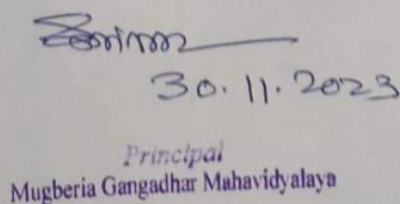 30.11.2023
Principal
Mugberia Gangadhar Mahavidyalaya